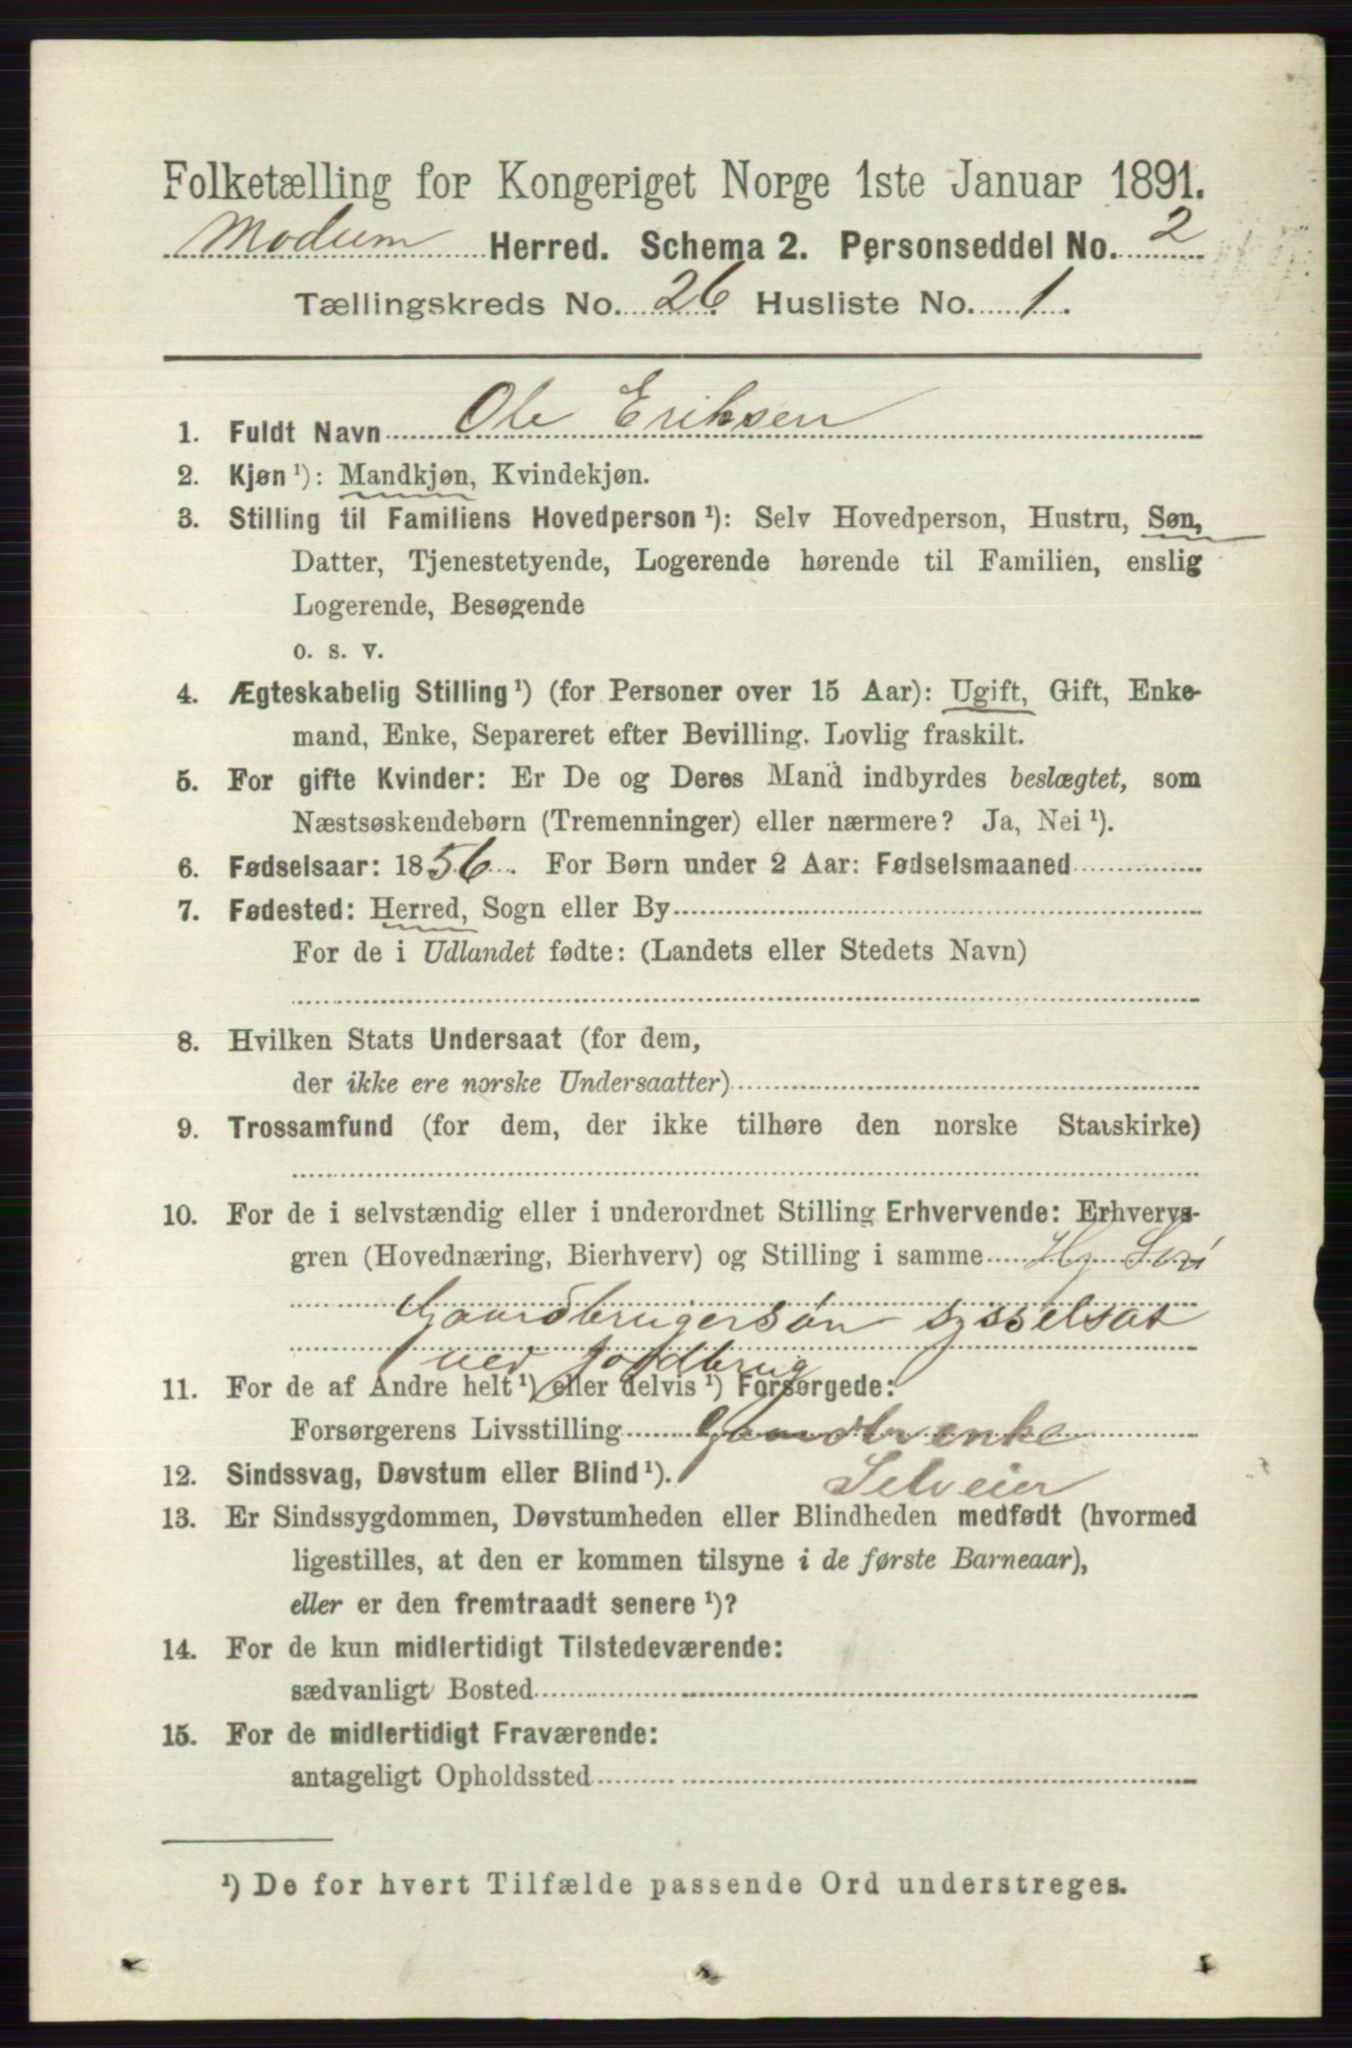 Folketælling for Kongeriget Norge 1ste Januar 1891.
Modum Herred. Schema 2. Personseddel No. 2
Tællingskreds No. 26 Husliste No. 1.
1. Fuldt Navn Ole Eriksen
2. Kjøn ¹): Mandkjøn, Kvindekjøn.
3. Stilling til Familiens Hovedperson ¹): Selv Hovedperson, Hustru, Søn,
Datter, Tjenestetyende, Logerende hørende til Familien, enslig
Logerende, Besøgende
o. s. v.
4. Ægteskabelig Stilling ¹) (for Personer over 15 Aar): Ugift, Gift, Enke-
mand, Enke, Separeret efter Bevilling. Lovlig fraskilt.
5. For gifte Kvinder: Er De og Deres Mand indbyrdes beslægtet, som
Næstsøskendebørn (Tremenninger) eller nærmere? Ja, Nei ¹).
6. Fødselsaar: 1856. For Børn under 2 Aar: Fødselsmaaned
7. Fødested: Herred, Sogn eller By
For de i Udlandet fødte: (Landets eller Stedets Navn)
8. Hvilken Stats Undersaat (for dem,
der ikke ere norske Undersaatter)
9. Trossamfund (for dem, der ikke tilhøre den norske Statskirke)
10. For de i selvstændig eller i underordnet Stilling Erhvervende: Erhvervs-
gren (Hovednæring, Bierhverv) og Stilling i samme
Gaardbrugersøn sysselsat
ved Jordbrug
11. For de af Andre helt ¹) eller delvis ¹) Forsørgede:
Forsørgerens Livsstilling Gaardbr enke
Selveier
12. Sindssvag, Døvstum eller Blind ¹).
13. Er Sindssygdommen, Døvstumheden eller Blindheden medfødt (hvormed
ligestilles, at den er kommen tilsyne i de første Barneaar),
eller er den fremtraadt senere ¹)?
14. For de kun midlertidigt Tilstedeværende:
sædvanligt Bosted
15. For de midlertidigt Fraværende:
antageligt Opholdssted
¹) De for hvert Tilfælde passende Ord understreges.